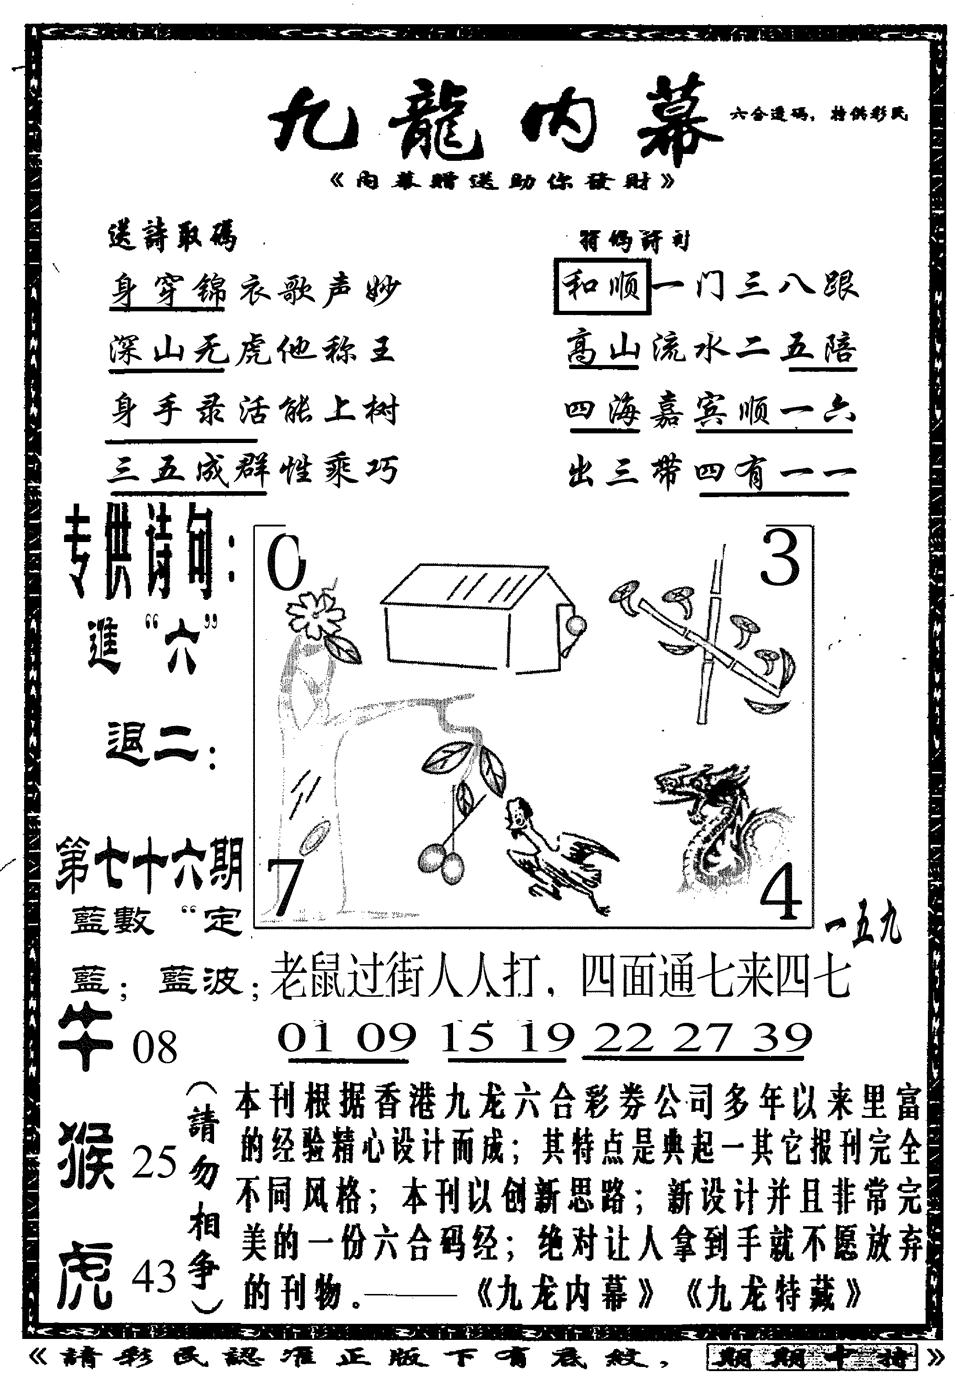 九龍内幕
六合透碼，特供彩民
《内幕贈送助你發財》
送詩取碼
身穿锦衣歌声妙
深山无虎他称王
身手录活能上树
三五成群性乘巧
符碼詩句
和顺一门三八跟
高山流水二五陪
四海嘉宾顺一六
出三带四有一一
专供诗句：
進“六”
退二：
第七十六期
藍數“定
藍；藍波；
0
3
7
4
一五九
老鼠过街人人打，四面通七来四七
01 09 15 19 22 27 39
牛 08
猴 25
虎 43
（請勿相争）
本刊根据香港九龙六合彩券公司多年以来里富
的经验精心设计而成；其特点是典起一其它报刊完全
不同风格；本刊以创新思路；新设计并且非常完
美的一份六合码经；绝对让人拿到手就不愿放弃
的刊物。——《九龙内幕》《九龙特藏》
《請彩民認准正版下有底紋，期期中特》